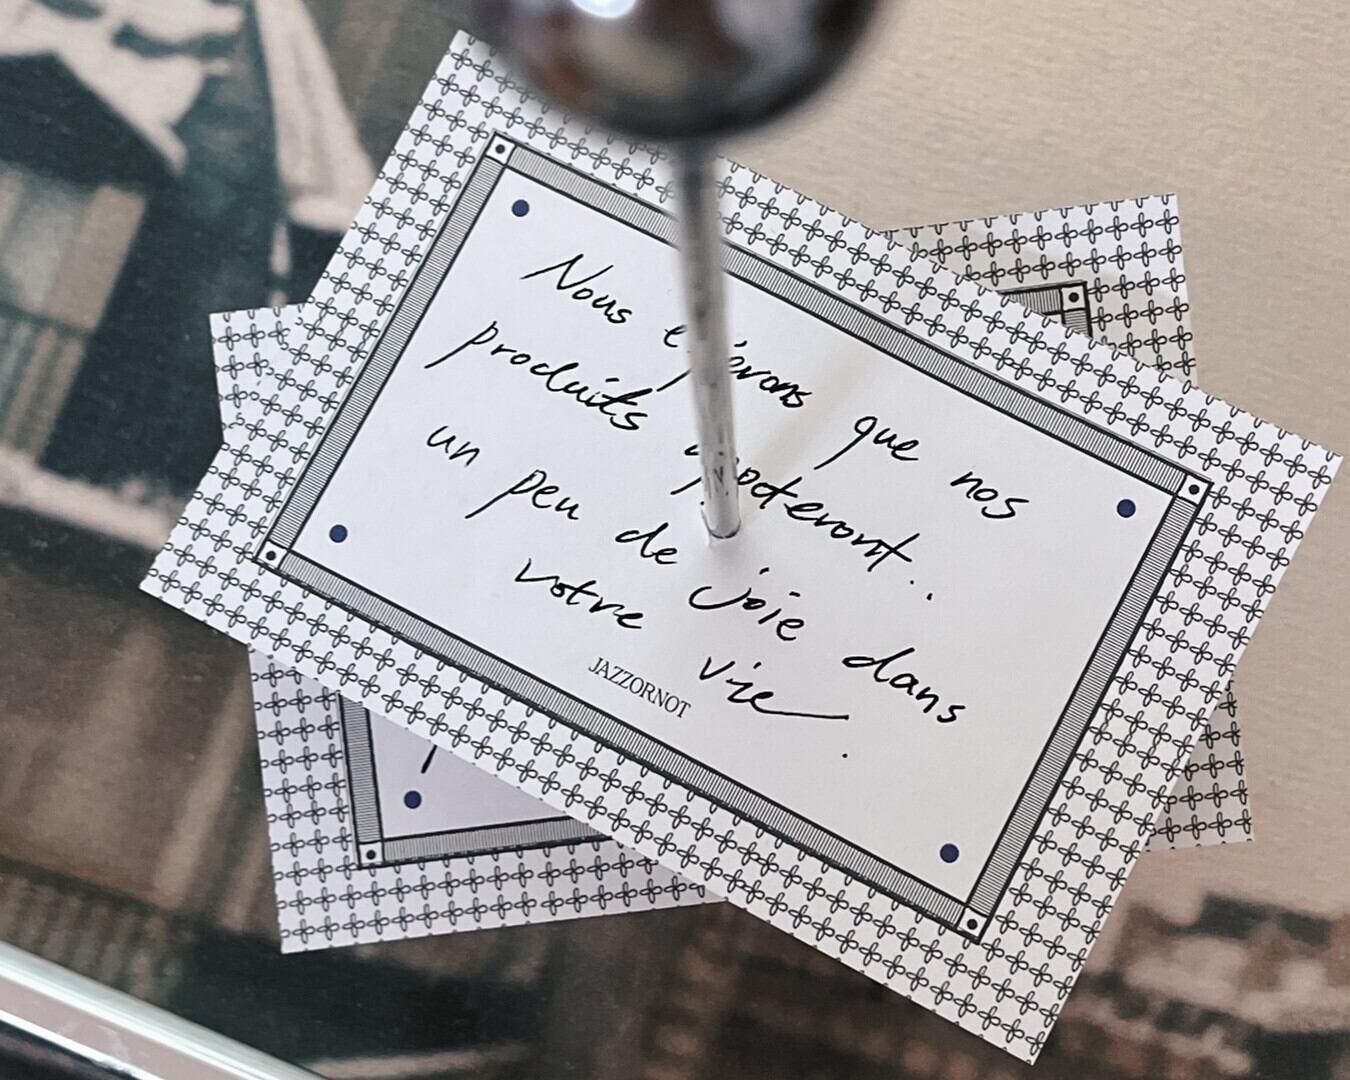 Nous espérons que nos
produits
un peu de joie dans
votre vie.
JAZZORNOT